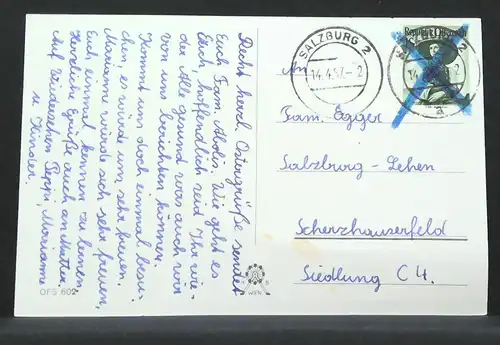 Recht herzl. Ostergrüße sendet
Euch Fam. Wie geht es
Euch, hoffendlich seid Ihr wie-
der alle gesund was auch wir
von uns berichten können.
Kommt uns doch einmal besu-
chen, es würde uns sehr freuen.
Marianne würde sich sehr freuen,
Euch einmal kennen zu lernen.
Herzliche Grüße auch an Mutter,
Auf Wiedersehen Peppi, Marianne
u. Kinder.
OFS 602
WIEN
SALZBURG 2
14.4.57.-2
SALZBURG 2
Republik Österreich
An
Fam. Egger
Salzburg - Lehen
Scherzhauserfeld
Siedlung C4.